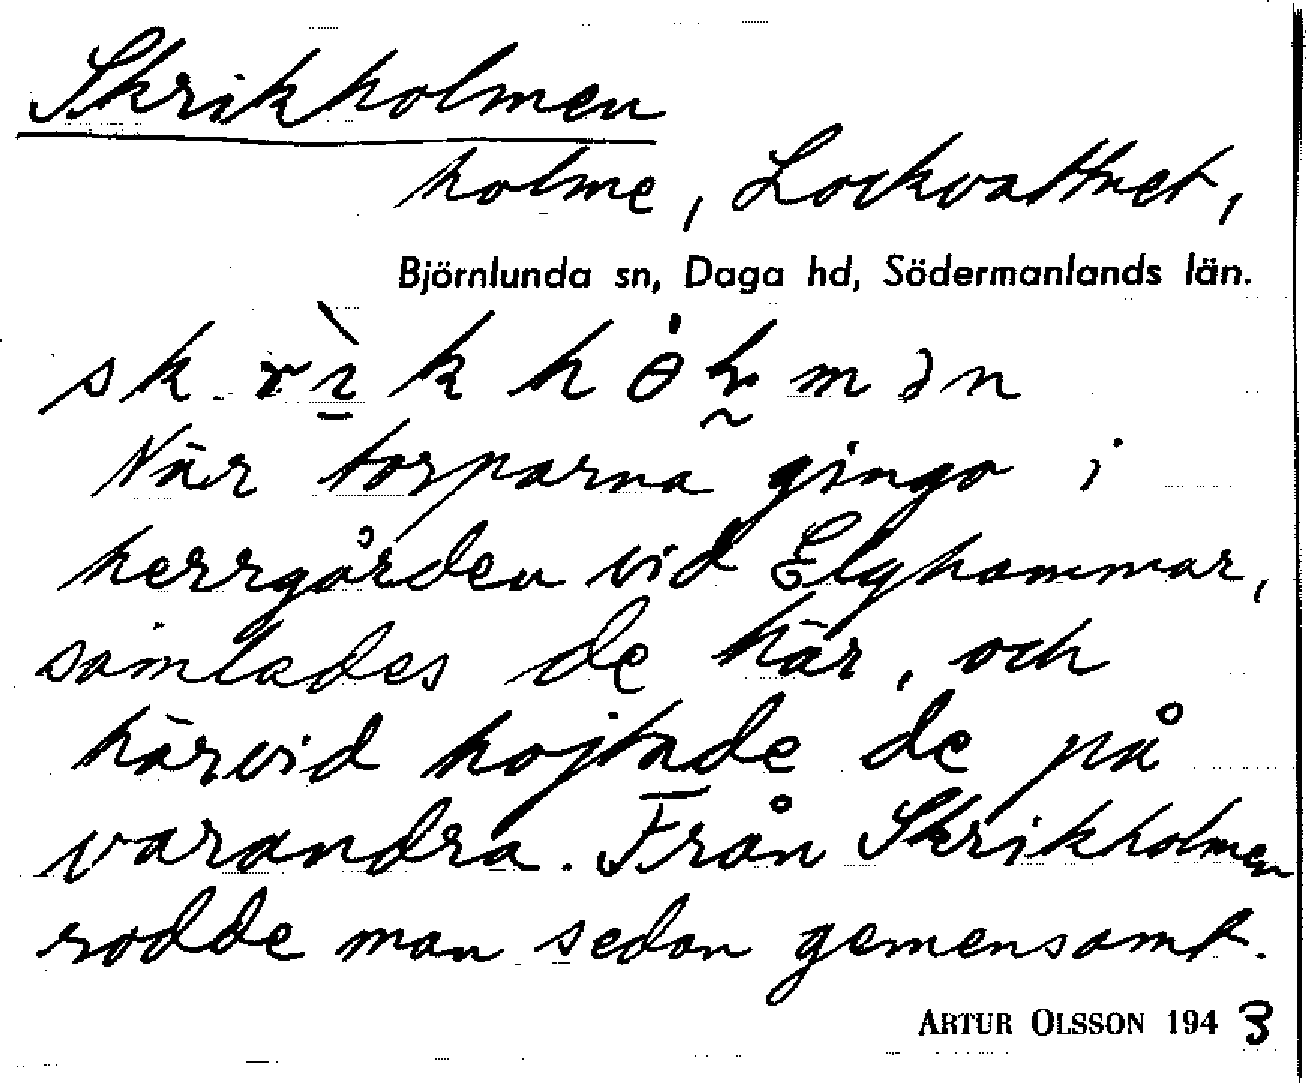 Skrikholmen
holme, Lockvattnet,
Björnlunda sn, Daga hd, Södermanlands län.
När torparna gingo i
herrgården vid Elghammar,
samlades de här, och
härvid hojtade de på
varandra. Från Skrikholmen
rodde man sedan gemensamt.
ARTUR OLSSON 1943